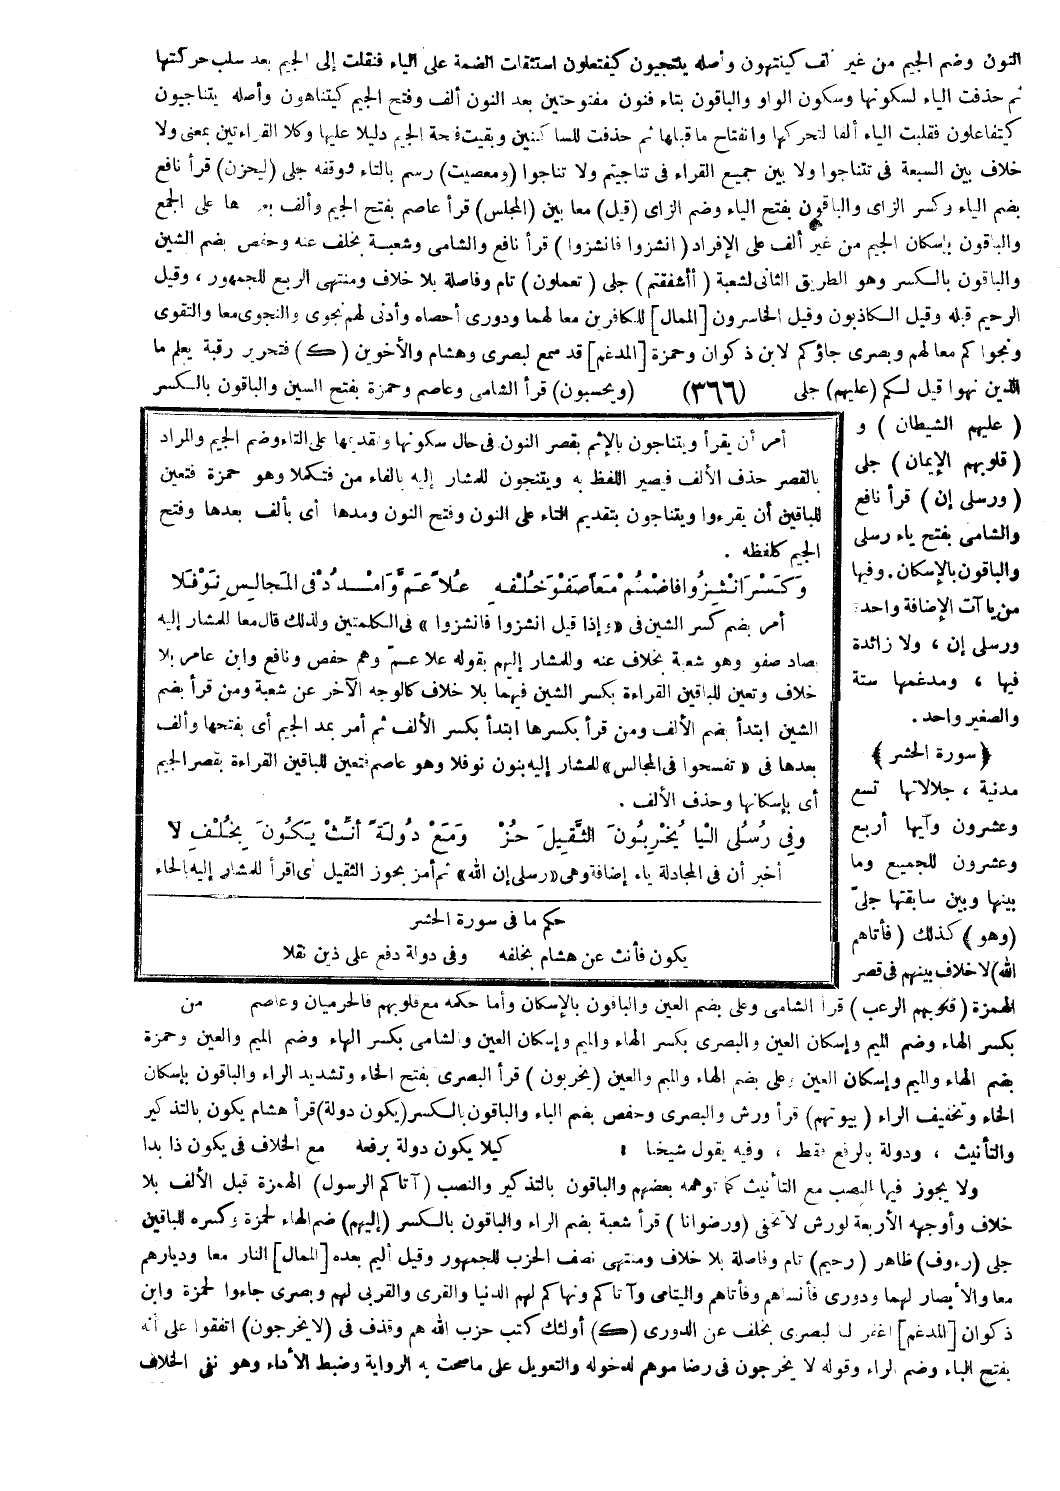 النون وضم الجيم من غير ألف كينتهون وأصله ينتجيون كيفتعلون استثقلت الضمة على الياء فنقلت إلى الجيم بعد سلب حركتها
ثم حذفت الياء لسكونها وسكون الواو والباقون بتاء فنون مفتوحتين بعد النون ألف وفتح الجيم كيتناهون وأصله يتناجيون
كيتفاعلون فقلبت الياء ألفا لتحركها وانفتاح ما قبلها ثم حذفت للساكنين وبقيت فتحة الجيم دليلا عليها وكلا القراءتين بمعنى ولا
خلاف بين السبعة فى تتناجوا ولا بين جميع القراء فى تناجيتم ولا تناجوا (ومعصيت) رسم بالتاء ووقفه جلى (ليحزن) قرأ نافع
بضم الياء وكسر الزاى والباقون بفتح الياء وضم الزاى (قيل) معا بين (المجلس) قرأ عاصم بفتح الجيم وألف بعدها على الجمع
والباقون بإسكان الجيم من غير ألف على الإفراد (انشزوا فانشزوا) قرأ نافع والشامى وشعبة بخلف عنه وحفص بضم الشين
والباقون بالكسر وهو الطريق الثانى لشعبة (أأشفقتم) جلى (تعملون) تام وفاصلة بلا خلاف ومنتهى الربع للجمهور ، وقيل
الرحيم قبله وقيل الكاذبون وقيل الخاسرون [الممال] للكافرين معا لهما ودورى أحصاه وأدنى لهم نجوى والنجوى معا والتقوى
ونجواكم معا لهم وبصرى جاؤكم لابن ذكوان وحمزة [المدغم] قد سمع لبصرى وهشام والأخوين (ك) فتحرير رقبة يعلم ما
الذين نهوا قيل لكم (عليهم) جلى (٣٦٦) (ويحسبون) قرأ الشامى وعاصم وحمزة بفتح السين والباقون بالكسر
(عليهم الشيطان) و
(قلوبهم الإيمان) جلى
(ورسلى إن) قرأ نافع
والشامى بفتح ياء رسلى
والباقون بالإسكان. وفيها
من ياآت الإضافة واحدة
ورسلى إن ، ولا زائدة
فيها ، ومدغمها ستة
والصغير واحد .
﴿سورة الحشر﴾
مدنية ، جلالاتها تسع
وعشرون وآيها أربع
وعشرون للجميع وما
بينها وبين سابقتها جلىّ
(وهو) كذلك (فأتاهم
الله) لا خلاف بينهم فى قصر
أمر أن يقرأ ويتناجون بالإثم بقصر النون فى حال سكونها وتقديمها على التاء وضم الجيم والمراد
بالقصر حذف الألف فيصير اللفظ به وينتجون للمشار إليه بالفاء من فتكملا وهو حمزة فتعين
للباقين أن يقرءوا ويتناجون بتقديم التاء على النون وفتح النون ومدها أى بألف بعدها وفتح
الجيم كلفظه .
وَكَسْرَ انْشِزُوا فَاضْمُمْ مَعًا صَفْوَ خُلْفِهِ عُلاً عَمَّ وَامْدُدْ فى المَجَالِسِ نَوْفَلاَ
أمر بضم كسر الشين فى «وإذا قيل انشزوا فانشزوا» فى الكلمتين ولذلك قال معا للمشار إليه
بصاد صفو وهو شعبة بخلاف عنه وللمشار إليهم بقوله علا عمّ وهم حفص ونافع وابن عامر بلا
خلاف وتعين للباقين القراءة بكسر الشين فيهما بلا خلاف كالوجه الآخر عن شعبة ومن قرأ بضم
الشين ابتدأ بضم الألف ومن قرأ بكسرها ابتدأ بكسر الألف ثم أمر بمد الجيم أى بفتحها وألف
بعدها فى «تفسحوا فى المجالس» للمشار إليه بنون نوفلا وهو عاصم فتعين للباقين القراءة بقصر الجيم
أى بإسكانها وحذف الألف .
وفِى رُسُلِى الْيَا يُخْرِبُونَ الثَّقِيلَ حُزْ وَمَعْ دُولَةً أَنِّثْ يَكُونَ بِخُلْفِ لَا
أخبر أن فى المجادلة ياء إضافة وهى «رسلى إن الله» ثم أمز بحوز الثقيل أى اقرأ للمشار إليه بالحاء
حكم ما فى سورة الحشر
يكون فأنث عن هشام بخلفه وفى دولة دفع على ذين نقلا
الهمزة (قلوبهم الرعب) قرأ الشامى وعلى بضم العين والباقون بالإسكان وأما حكمه مع قلوبهم فالحرميان وعاصم من
بكسر الهاء وضم الميم وإسكان العين والبصرى بكسر الهاء والميم وإسكان العين والشامى بكسر الهاء وضم الميم والعين وحمزة
بضم الهاء والميم وإسكان العين وعلى بضم الهاء والميم والعين (يخربون) قرأ البصرى بفتح الخاء وتشديد الراء والباقون بإسكان
الخاء وتخفيف الراء (بيوتهم) قرأ ورش والبصرى وحفص بضم الباء والباقون بالكسر (يكون دولة) قرأ هشام يكون بالتذكير
والتأنيث ، ودولة بالرفع فقط ، وفيه يقول شيخنا : كيلا يكون دولة برفعه مع الخلاف فى يكون ذا بدا
ولا يجوز فيها النصب مع التأنيث كما توهمه بعضهم والباقون بالتذكير والنصب (آتاكم الرسول) الهمزة قبل الألف بلا
خلاف وأوجهه الأربعة لورش لا تخفى (ورضوانا) قرأ شعبة بضم الراء والباقون بالكسر (إليهم) ضم الهاء لحمزة وكسره للباقين
جلى (رءوف) ظاهر (رحيم) تام وفاصلة بلا خلاف ومنتهى نصف الحزب للجمهور وقيل أليم بعده [الممال] النار معا وديارهم
معا والأبصار لهما ودورى فأنساهم وفأتاهم واليتامى وآتاكم ونهاكم لهم الدنيا والقرى والقربى لهم وبصرى جاءوا لحمزة وابن
ذكوان [المدغم] اغفر لنا لبصرى بخلف عن الدورى (ك) أولئك كتب حزب الله هم وقذف فى (لا يخرجون) اتفقوا على أنه
بفتح الياء وضم الراء وقوله لا يخرجون فى رضا موهم لدخوله والتعويل على ما صحت به الرواية وضبط الأداء وهو نفى الخلاف